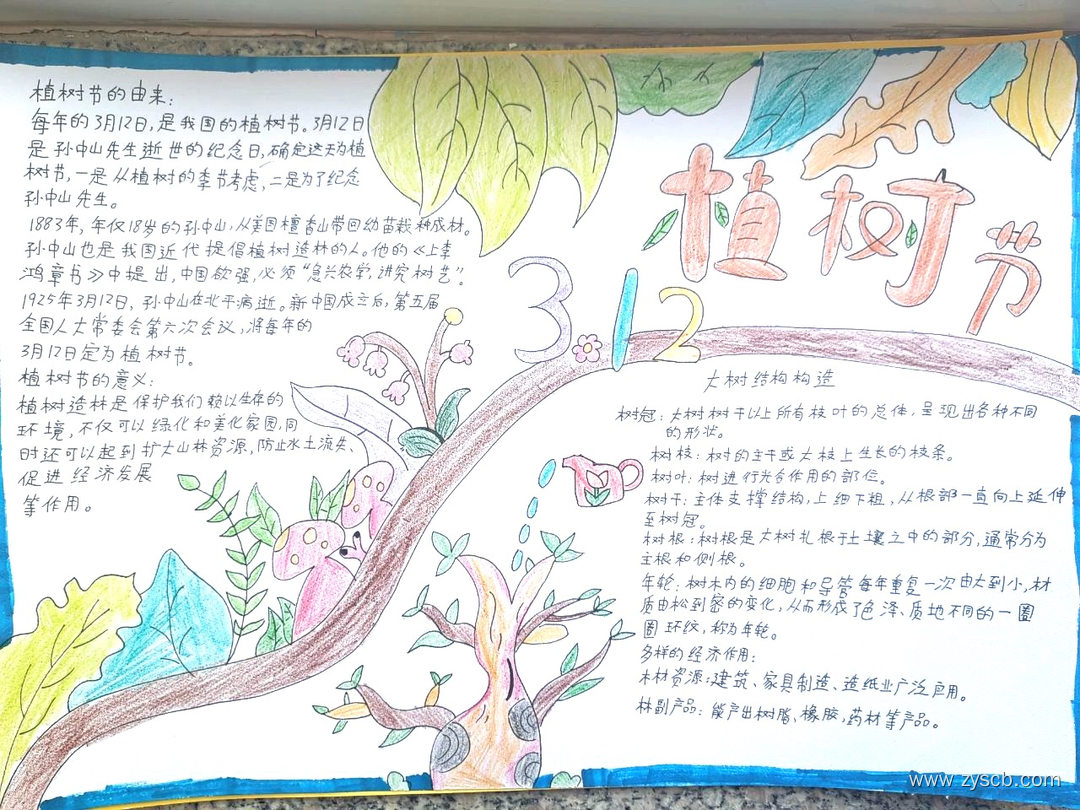 植树节的由来:
每年的3月12日,是我国的植树节。3月12日
是孙中山先生逝世的纪念日,确定这天为植
树节,一是从植树的季节考虑,二是为了纪念
孙中山先生。
1883年,年仅18岁的孙中山,从美国檀香山带回幼苗栽种成材。
孙中山也是我国近代提倡植树造林的人。他的《上李
鸿章书》中提出,中国欲强,必须“急兴农学,讲究树艺”。
1925年3月12日,孙中山在北平病逝。新中国成立后,第五届
全国人大常委会第六次会议,将每年的
3月12日定为植树节。
植树节的意义:
植树造林是保护我们赖以生存的
环境,不仅可以绿化和美化家园,同
时还可以起到扩大山林资源,防止水土流失、
促进经济发展
等作用。
植树节
312
大树结构构造
树冠:大树树干以上所有枝叶的总体,呈现出各种不同
的形状。
树枝:树的主干或大枝上生长的枝条。
树叶:树进行光合作用的部位。
树干:主体支撑结构,上细下粗,从根部一直向上延伸
至树冠。
树根:树根是大树扎根于土壤之中的部分,通常分为
主根和侧根。
年轮:树木内的细胞和导管每年重复一次由大到小,材
质由松到密的变化,从而形成了色泽、质地不同的一圈
圈环纹,称为年轮。
多样的经济作用:
木材资源:建筑、家具制造、造纸业广泛应用。
林副产品:能产出树脂、橡胶,药材等产品。
www.zyscb.com